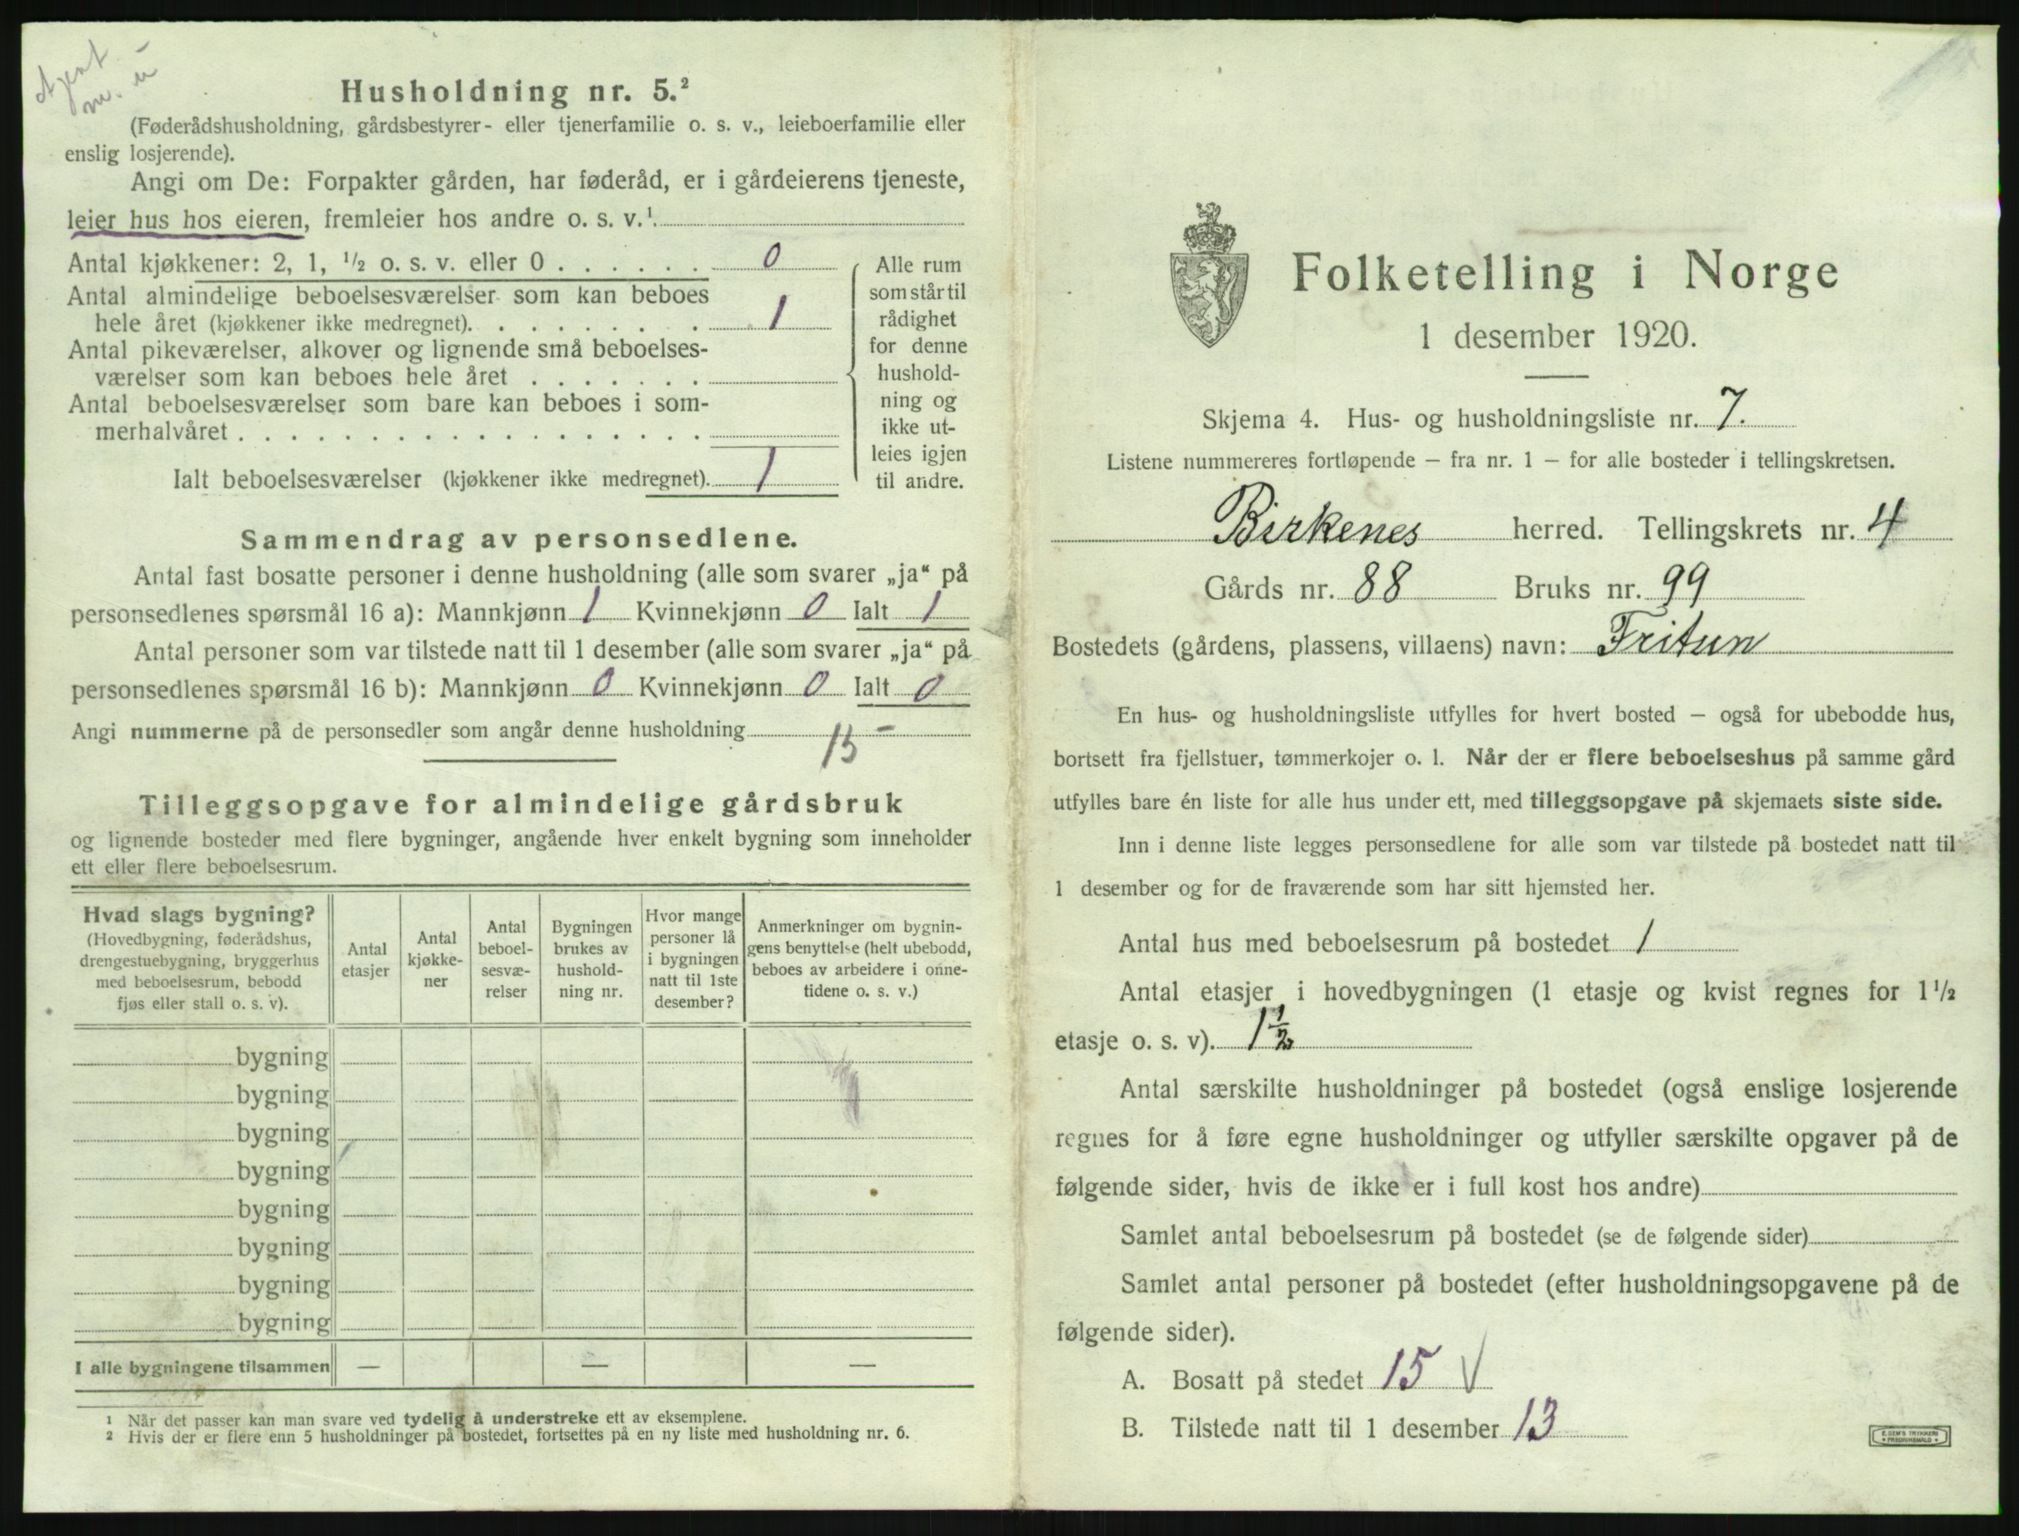 Agent
m. u
Husholdning nr. 5.²
(Føderådshusholdning, gårdsbestyrer- eller tjenerfamilie o. s. v., leieboerfamilie eller
enslig losjerende).
Angi om De: Forpakter gården, har føderåd, er i gårdeierens tjeneste,
leier hus hos eieren, fremleier hos andre o. s. v.¹
Antal kjøkkener: 2, 1, ½ o. s. v. eller 0 . . . . . . 0
Antal almindelige beboelsesværelser som kan beboes
hele året (kjøkkener ikke medregnet). . . . . . . . . 1
Antal pikeværelser, alkover og lignende små beboelses-
værelser som kan beboes hele året . . . . . . .
Antal beboelsesværelser som bare kan beboes i som-
merhalvåret . . . . . . . . . . . . . . . . . .
Ialt beboelsesværelser (kjøkkener ikke medregnet). 1
Alle rum
som står til
rådighet
for denne
hushold-
ning og
ikke ut-
leies igjen
til andre.
Sammendrag av personsedlene.
Antal fast bosatte personer i denne husholdning (alle som svarer „ja“ på
personsedlenes spørsmål 16 a): Mannkjønn 1 Kvinnekjønn 0 Ialt 1
Antal personer som var tilstede natt til 1 desember (alle som svarer „ja“ på
personsedlenes spørsmål 16 b): Mannkjønn 0 Kvinnekjønn 0 Ialt 0
Angi nummerne på de personsedler som angår denne husholdning 15
Tilleggsopgave for almindelige gårdsbruk
og lignende bosteder med flere bygninger, angående hver enkelt bygning som inneholder
ett eller flere beboelsesrum.
Hvad slags bygning?
(Hovedbygning, føderådshus,
drengestuebygning, bryggerhus
med beboelsesrum, bebodd
fjøs eller stall o. s. v).
Antal
etasjer
Antal
kjøkke-
ner
Antal
beboel-
sesvæ-
relser
Bygningen
brukes av
hushold-
ning nr.
Hvor mange
personer lå
i bygningen
natt til 1ste
desember?
Anmerkninger om bygnin-
gens benyttelse (helt ubebodd,
beboes av arbeidere i onne-
tidene o. s. v.)
bygning
bygning
bygning
bygning
bygning
bygning
bygning
bygning
I alle bygningene tilsammen — — —
1 Når det passer kan man svare ved tydelig å understreke ett av eksemplene.
2 Hvis der er flere enn 5 husholdninger på bostedet, fortsettes på en ny liste med husholdning nr. 6.
Folketelling i Norge
1 desember 1920.
Skjema 4. Hus- og husholdningsliste nr. 7.
Listene nummereres fortløpende – fra nr. 1 – for alle bosteder i tellingskretsen.
Birkenes herred. Tellingskrets nr. 4
Gårds nr. 88 Bruks nr. 99
Bostedets (gårdens, plassens, villaens) navn: Fritun
En hus- og husholdningsliste utfylles for hvert bosted – også for ubebodde hus,
bortsett fra fjellstuer, tømmerkojer o. l. Når der er flere beboelseshus på samme gård
utfylles bare én liste for alle hus under ett, med tilleggsopgave på skjemaets siste side.
Inn i denne liste legges personsedlene for alle som var tilstede på bostedet natt til
1 desember og for de fraværende som har sitt hjemsted her.
Antal hus med beboelsesrum på bostedet 1
Antal etasjer i hovedbygningen (1 etasje og kvist regnes for 1½
etasje o. s. v). 1½
Antal særskilte husholdninger på bostedet (også enslige losjerende
regnes for å føre egne husholdninger og utfyller særskilte opgaver på de
følgende sider, hvis de ikke er i full kost hos andre)
Samlet antal beboelsesrum på bostedet (se de følgende sider)
Samlet antal personer på bostedet (efter husholdningsopgavene på de
følgende sider).
A. Bosatt på stedet 15 √
B. Tilstede natt til 1 desember 13
E. SEM'S TRYKKERI
FREDRIKSHALD